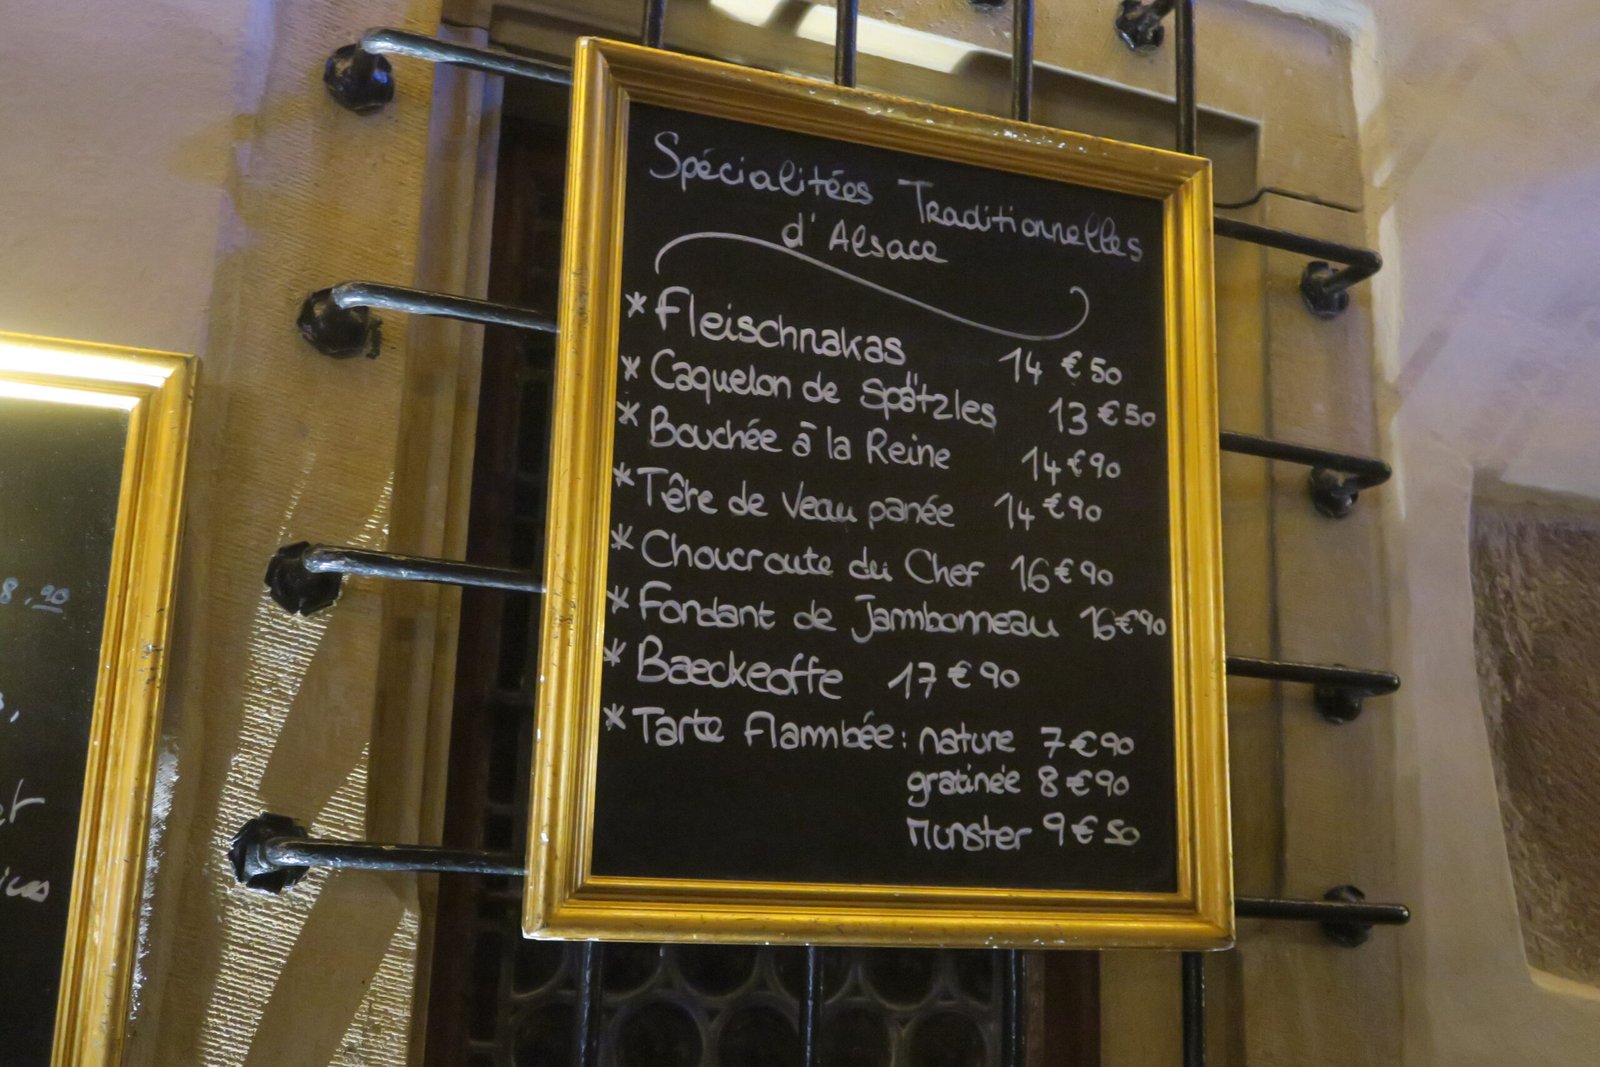 Spécialitées Traditionnelles
d'Alsace
*Fleischnakas 14€50
*Caquelon de Spätzles 13€50
*Bouchée à la Reine 14€90
*Tête de Veau panée 14€90
*Choucroute du Chef 16€90
*Fondant de Jambonneau 16€90
*Baeckeoffe 17€90
*Tarte Flambée: nature 7€90
gratinée 8€90
Munster 9€50
8,90